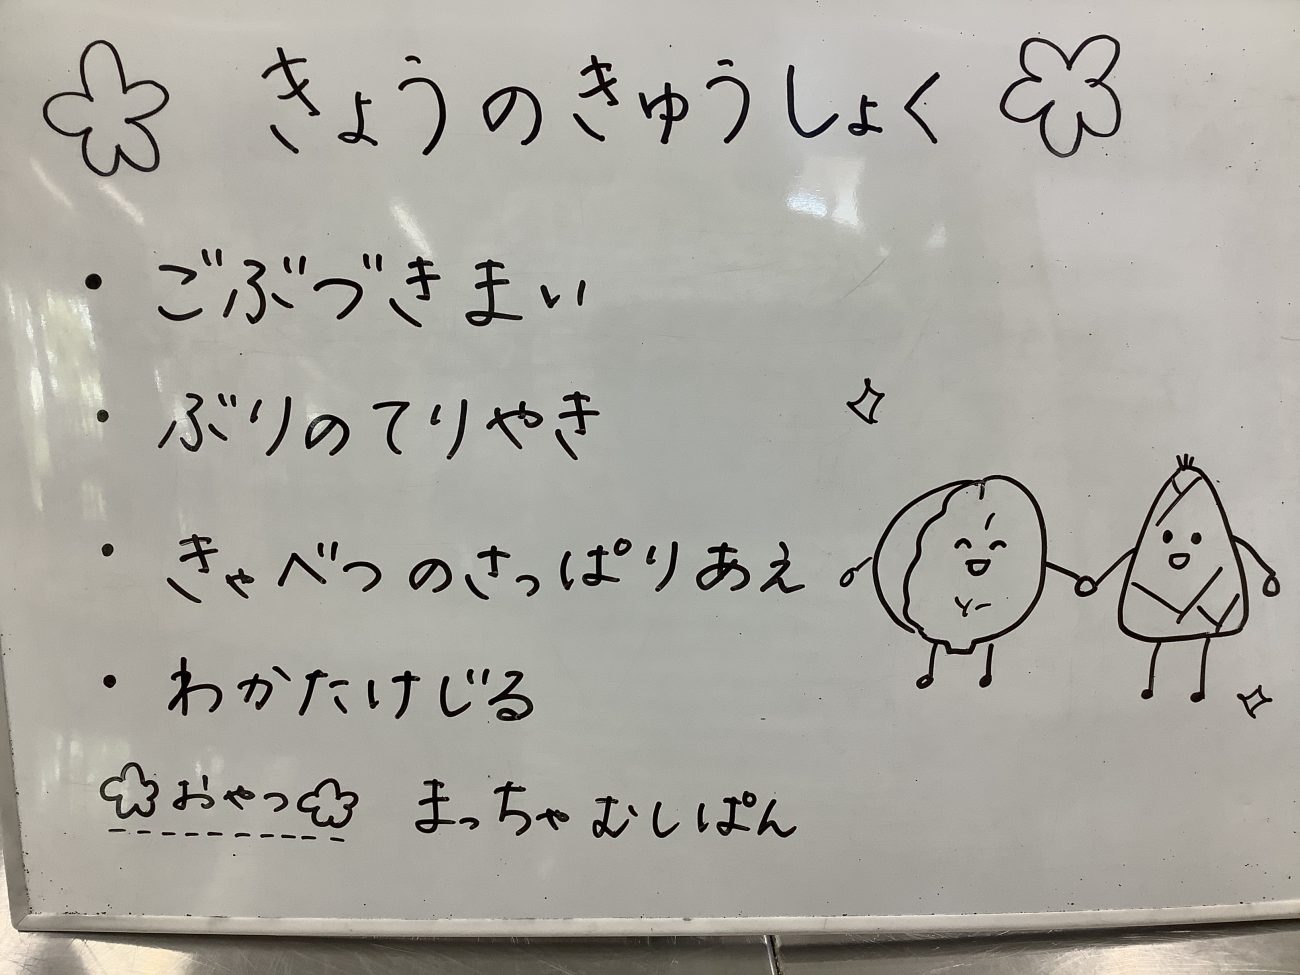 きょうのきゅうしょく
・ごぶづきまい
・ぶりのてりやき
・きゃべつのさっぱりあえ
・わかたけじる
おやつ まっちゃむしぱん